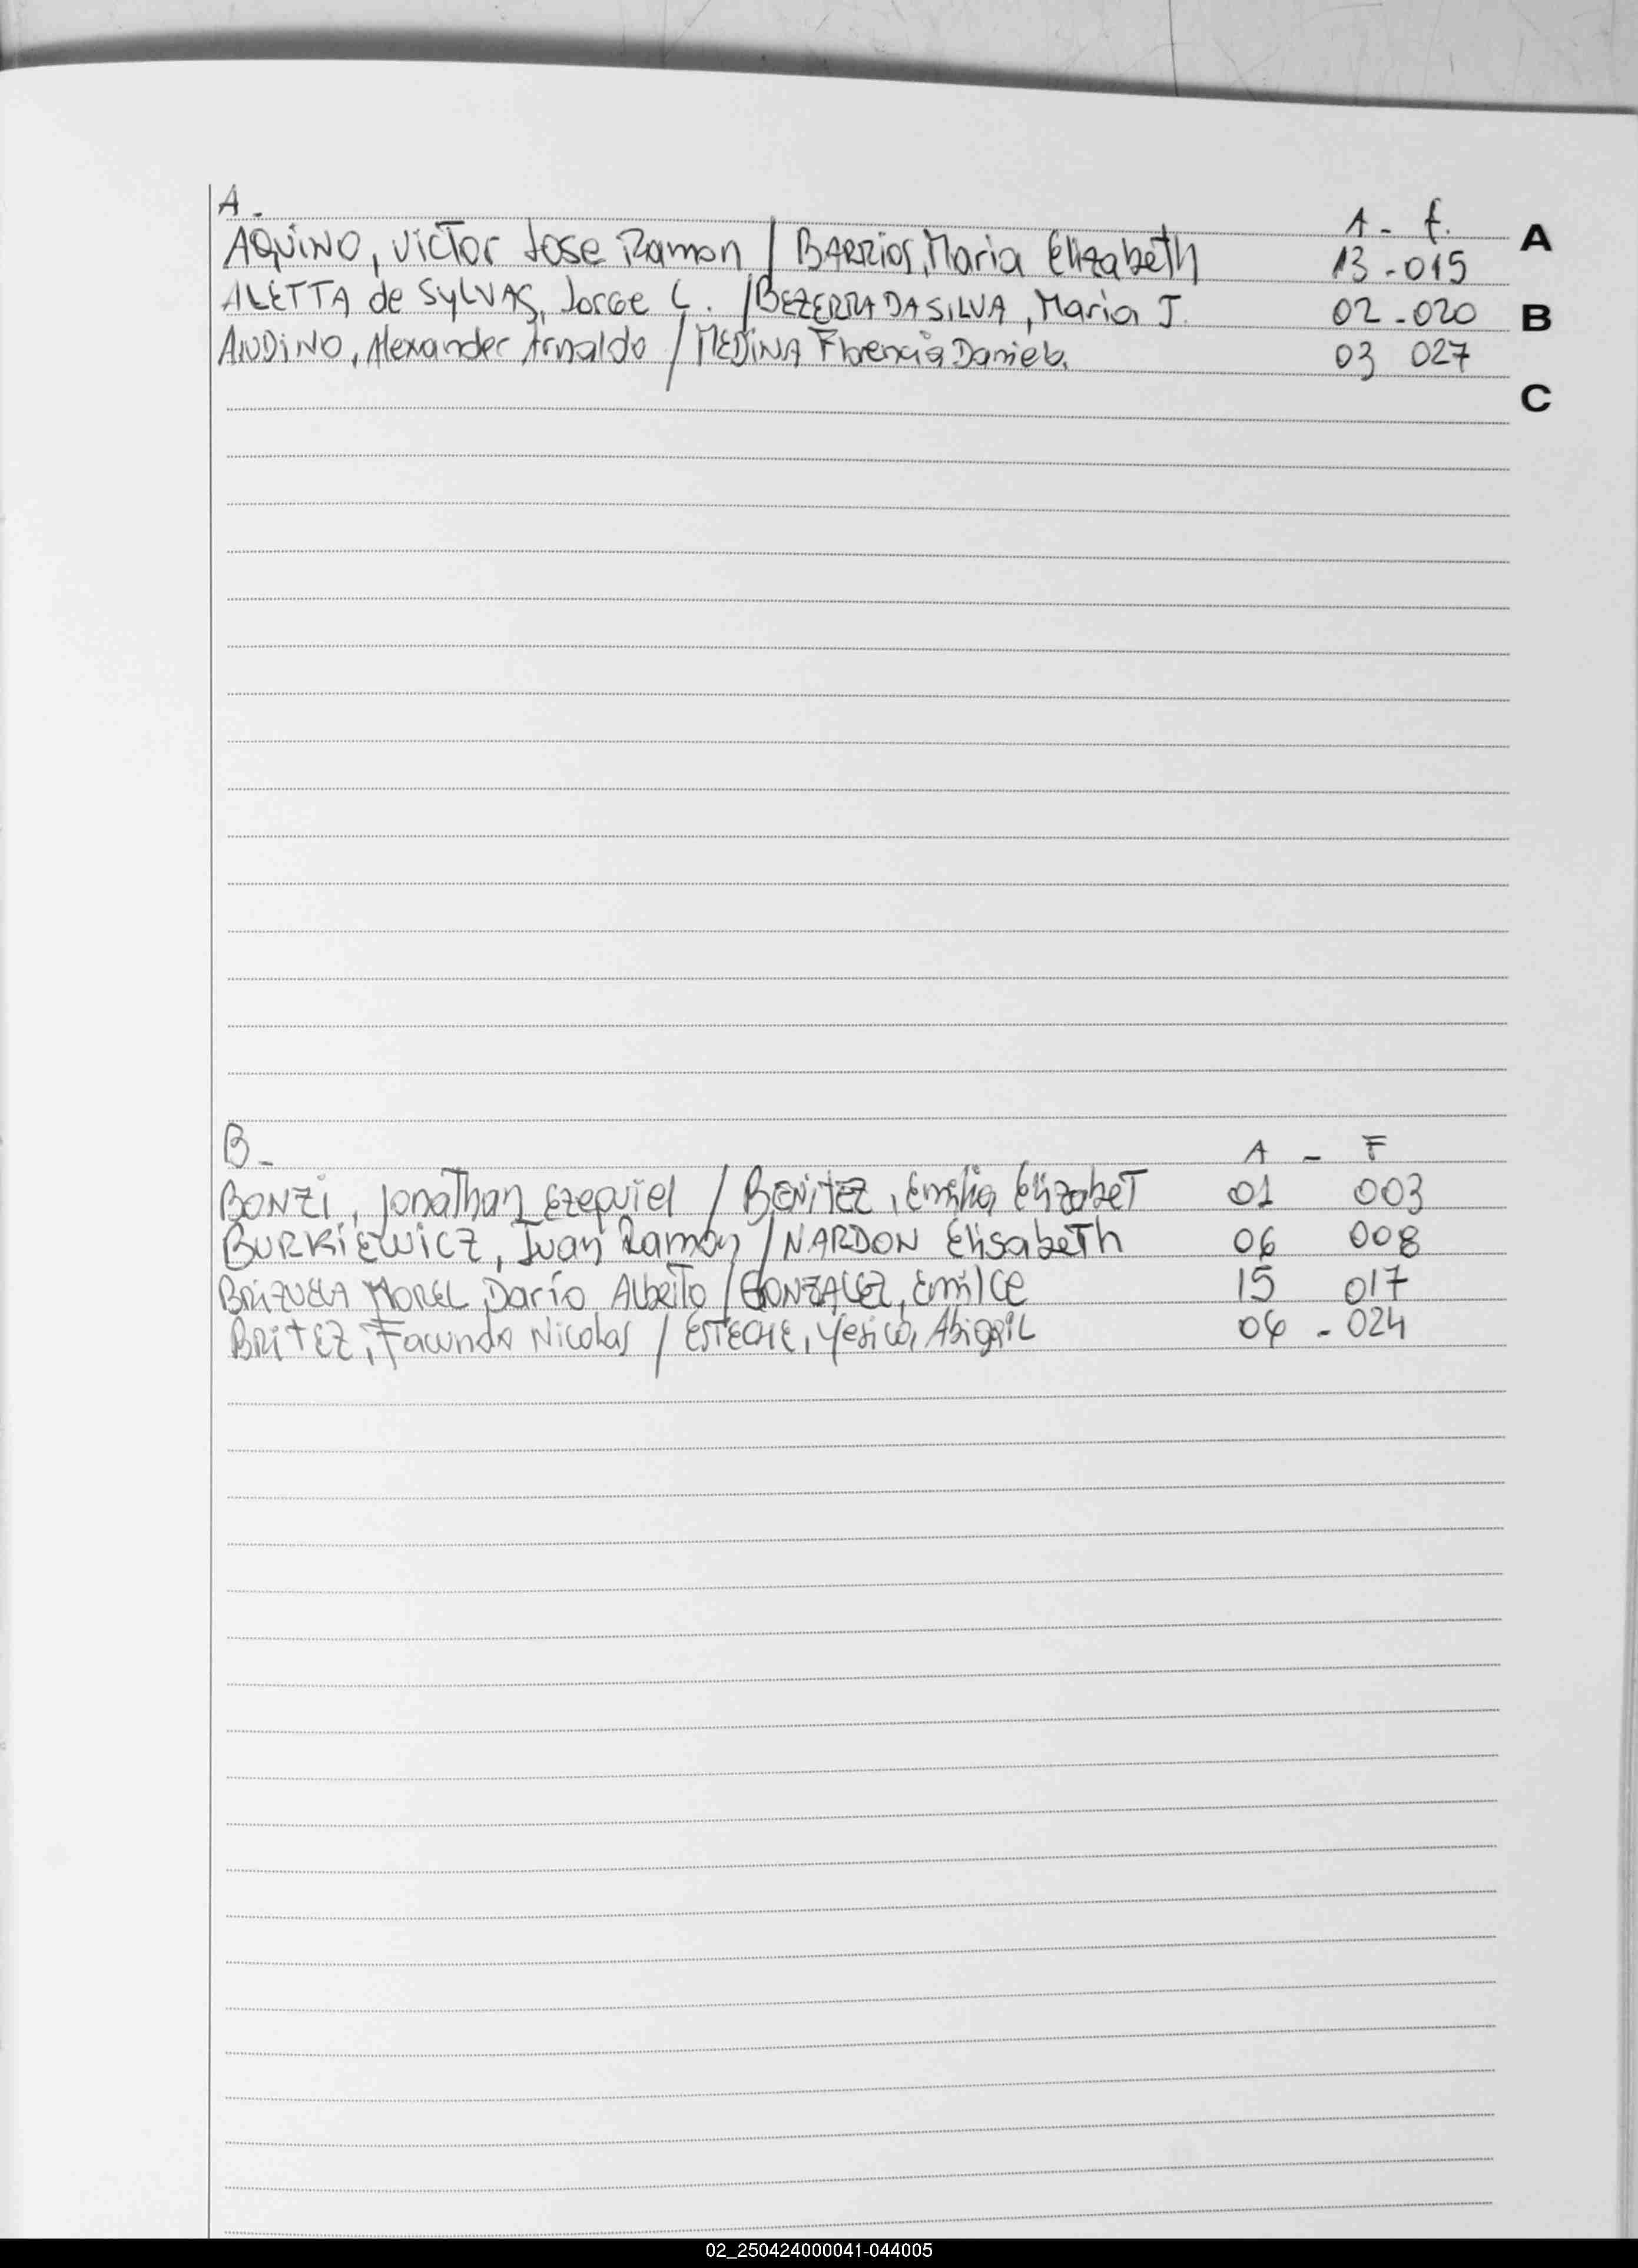 A - A - f. A
AQUINO, Victor Jose Ramon / BARRIOS, Maria Elizabeth 13 - 015
ALETTA de SYLVAS, Jorge C. / BEZERRA DA SILVA, Maria J. 02 - 020 B
AIUDINO, Alexander Arnaldo / MEDINA Florencia Daniela 03 027
C
B - A - F
BONZI, Jonathan Ezequiel / BENITEZ, Emilia Elizabet 01 003
BURKIEWICZ, Juan Ramon / NARDON Elisabeth 06 008
BRIZUELA MOREL Darío Alberto / GONZALEZ, Emilce 15 017
BRITEZ, Facundo Nicolas / ESTECHE, Yesica, Abigail 04 - 024
02_250424000041-044005